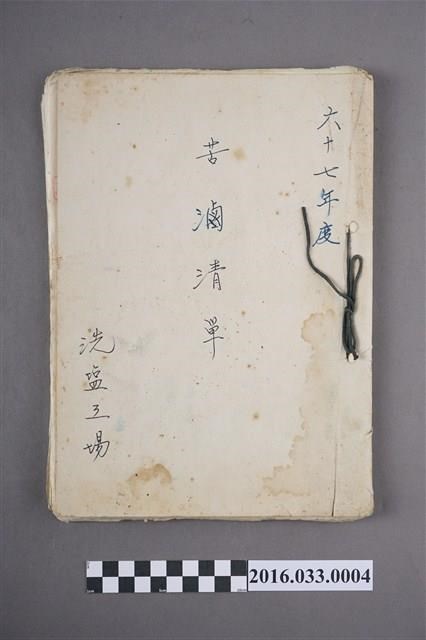 六十七年度
苦滷清單
洗盐工場
2016.033.0004